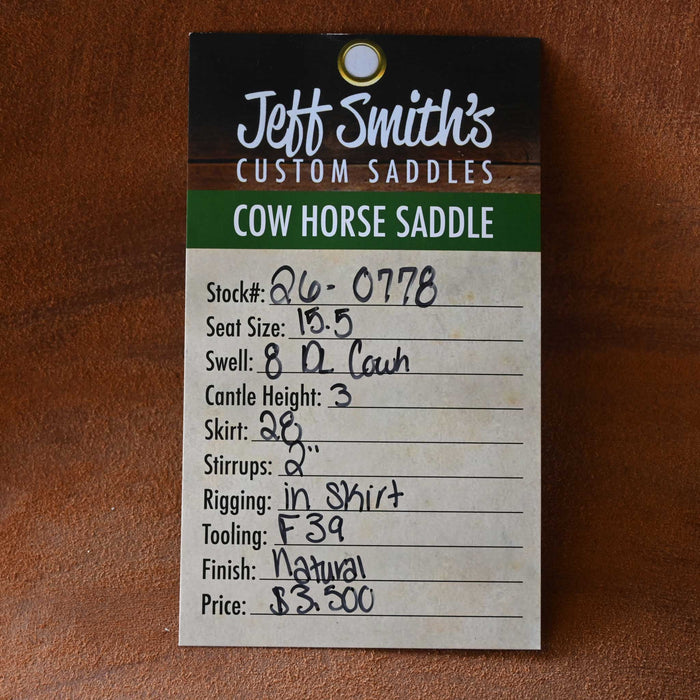 Jeff Smith's
CUSTOM SADDLES
COW HORSE SADDLE
Stock#: 26-0778
Seat Size: 15.5
Swell: 8 DL Cowh
Cantle Height: 3
Skirt: 28
Stirrups: 2"
Rigging: in skirt
Tooling: F 39
Finish: Natural
Price: $3.500